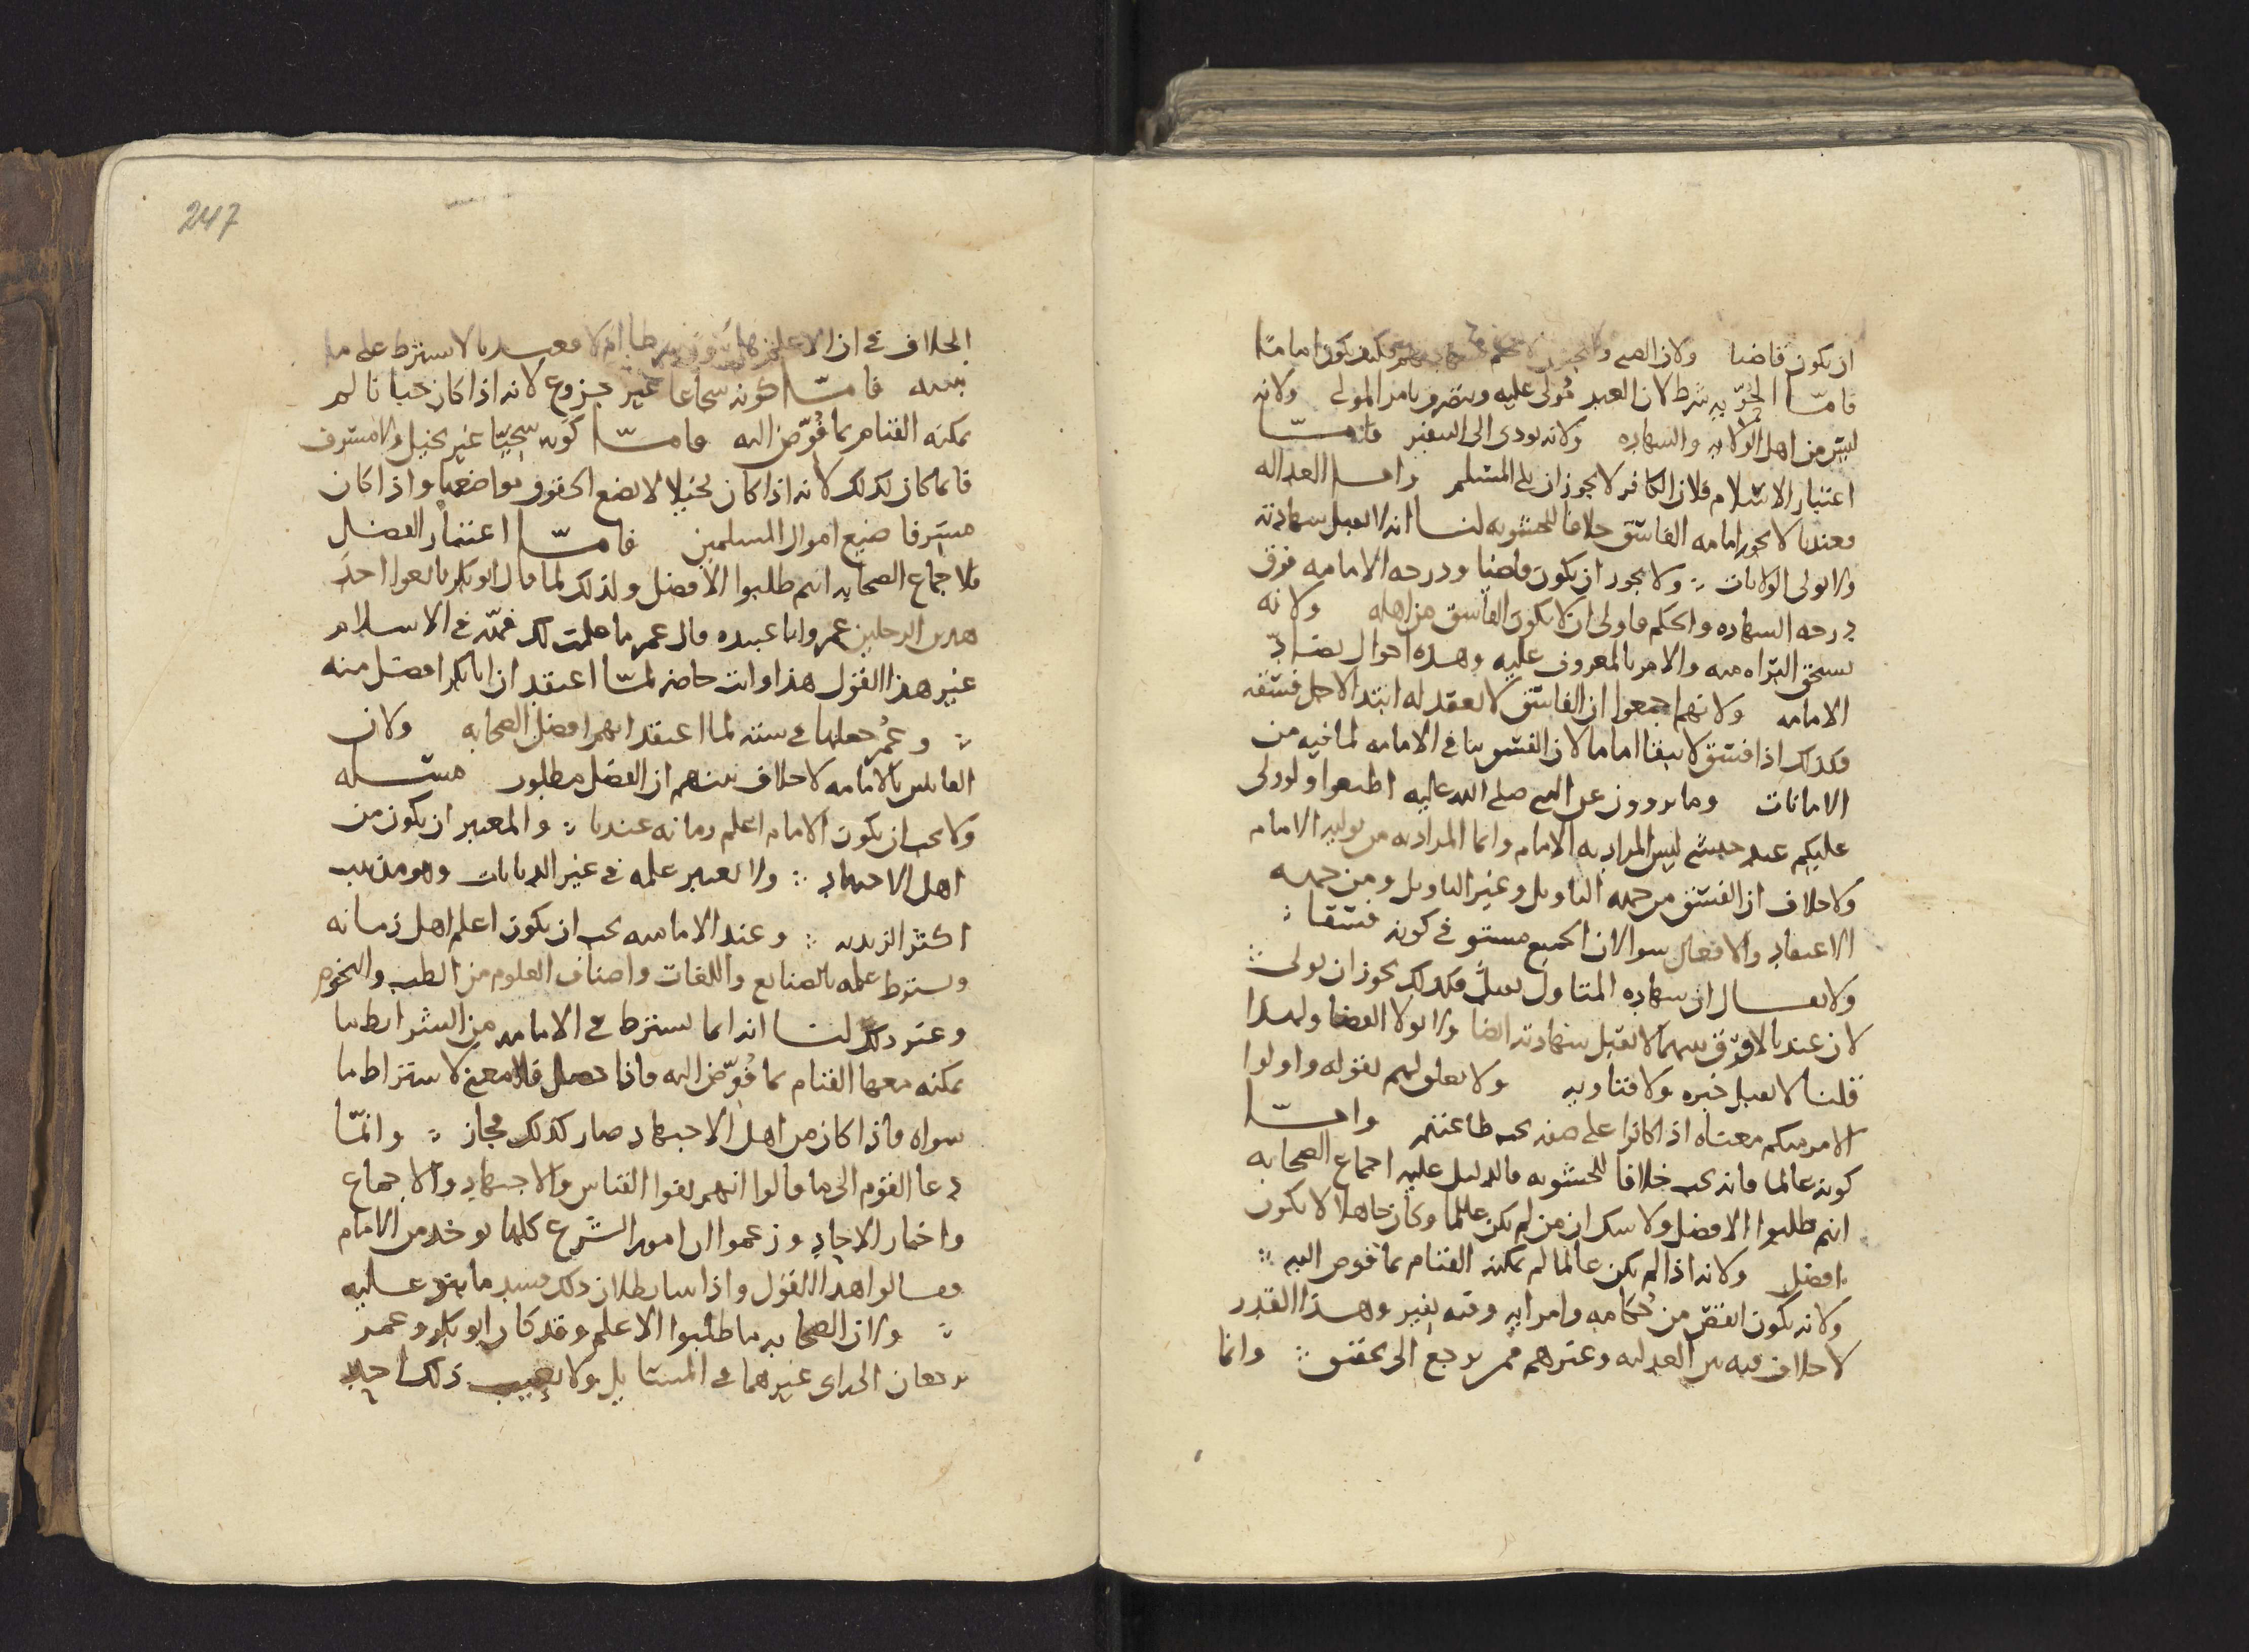 ان يكون قاضيا ولان الصبي والمجنون لا حكم فكيف يكون اماما
فامّا الحرّيه شرط لان العبد مُولى عليه ويتصرف بامر المولى ولانه
ليس من اهل الولايه والشهاده ولانه يودى الى السفير فامّا
اعتبار الاسلام فلان الكافر لا يجوز ان يلي المسلم واما العداله
فعندنا لا يجوز امامه الفاسق خلافا للحشويه لنا انه لا يقبل شهادته
ولا يولى الولايات ولا يجوز ان يكون قاضيا ودرجه الامامه فوق
درجه الشهاده والحكم فاولى ان لا يكون الفاسق من اهله ولانه
يستحق البراه منه والامر بالمعروف عليه وهذه احوال تضادّ
الامامه ولانهم اجمعوا ان الفاسق لا يعقد له ابتدا لاجل فسقه
فكذلك اذا فسق لا يبقا اماما لان الفسق ينافي الامامه لما فيه من
الامانات وما يروون عن النبي صلى الله عليه اطيعوا ولو ولى
عليكم عبد حبشي ليس المراد به الامام وانما المراد به من يوليه الامام
ولا خلاف ان الفسق من جهه التاويل وغير التاويل ومن جهه
الاعتقاد والافعال سوا لان الجميع مستو في كونه فسقا
ولا يقال ان شهاده المتاول يقبل فكذلك يجوز ان يولى
لان عندنا لا فرق بينهما لا تقبل شهادته ايضا ولا يولا القضا ولهذا
قلنا لا يقبل خبره ولا فتاويه ولا تعلق لهم بقوله واولوا
الامر منكم معناه اذا كانوا على صفه يجب طاعتهم وامّا
كونه عالما فانه يجب خلافا للحشويه والدليل عليه اجماع الصحابه
انهم طلبوا الافضل ولا شك ان من لم يكن عالما وكان جاهلا لا يكون
افضل ولانه اذا لم يكن عالما لم يمكنه القيام بما فوض اليه
ولانه يكون انقص من حُكامه وامرايه وفيه تغيير وهذا القدر
لا خلاف فيه بين العدليه وغيرهم ممن يرجع الى تحقيق وانما
الخلاف في ان الاعلم هل يكون شرطا ام لا فعندنا لا يشترط على ما
نبينه فامّا كونه شجاعا غير جزوع لانه اذا كان جبانا لم
يمكنه القيام بما فُوّض اليه فامّا كونه سخيّا غير بخيل ولا مسرف
فانما كان كذلك لانه اذا كان بخيلا لا يضع الحقوق مواضعها واذا كان
مسرفا ضيع اموال المسلمين فامّا اعتبار الفضل
فلاجماع الصحابه انهم طلبوا الافضل ولذلك لما قال ابو بكر بايعوا احد
هذين الرجلين عمر وابا عبيده قال عمر ما علمت لك فهّه في الاسلام
غير هذا القول هذا وانت حاضر لمّا اعتقد ان ابا بكر افضل منه
وعُمر جعلها في سته لما اعتقد انهم افضل الصحابه ولان
القايلين بالامامه لا خلاف بينهم ان الفضل مطلوب مسله
ولا يجب ان يكون الامام اعلم زمانه عندنا والمعتبر ان يكون من
اهل الاجتهاد ولا يعتبر علمه في غير الديانات وهو مذهب
اكثر الزيديه وعند الاماميه يجب ان يكون اعلم اهل زمانه
ويشترط علمه بالصنايع واللغات واصناف العلوم من الطب والنجوم
وغير ذلك لنا انه انما يشترط في الامامه من الشرايط ما
يمكنه معها القيام بما فُوّض اليه فاذا حصل فلا معنى لاشتراط ما
سواه فاذا كان من اهل الاجتهاد صار كذلك فجاز وانمّا
دعا القوم الى ما قالوا انهم نفوا القياس والاجتهاد والاجماع
واخبار الاحاد وزعموا ان امور الشرع كلها يوخذ من الامام
فقالوا هذا القول واذا بينا بطلان ذلك فسد ما بنوه عليه
ولان الصحابه ما طلبوا الاعلم وقد كان ابو بكر وعمر
يرجعان الى راى غيرهما في المسايل ولا يعيب ذلك احد
247